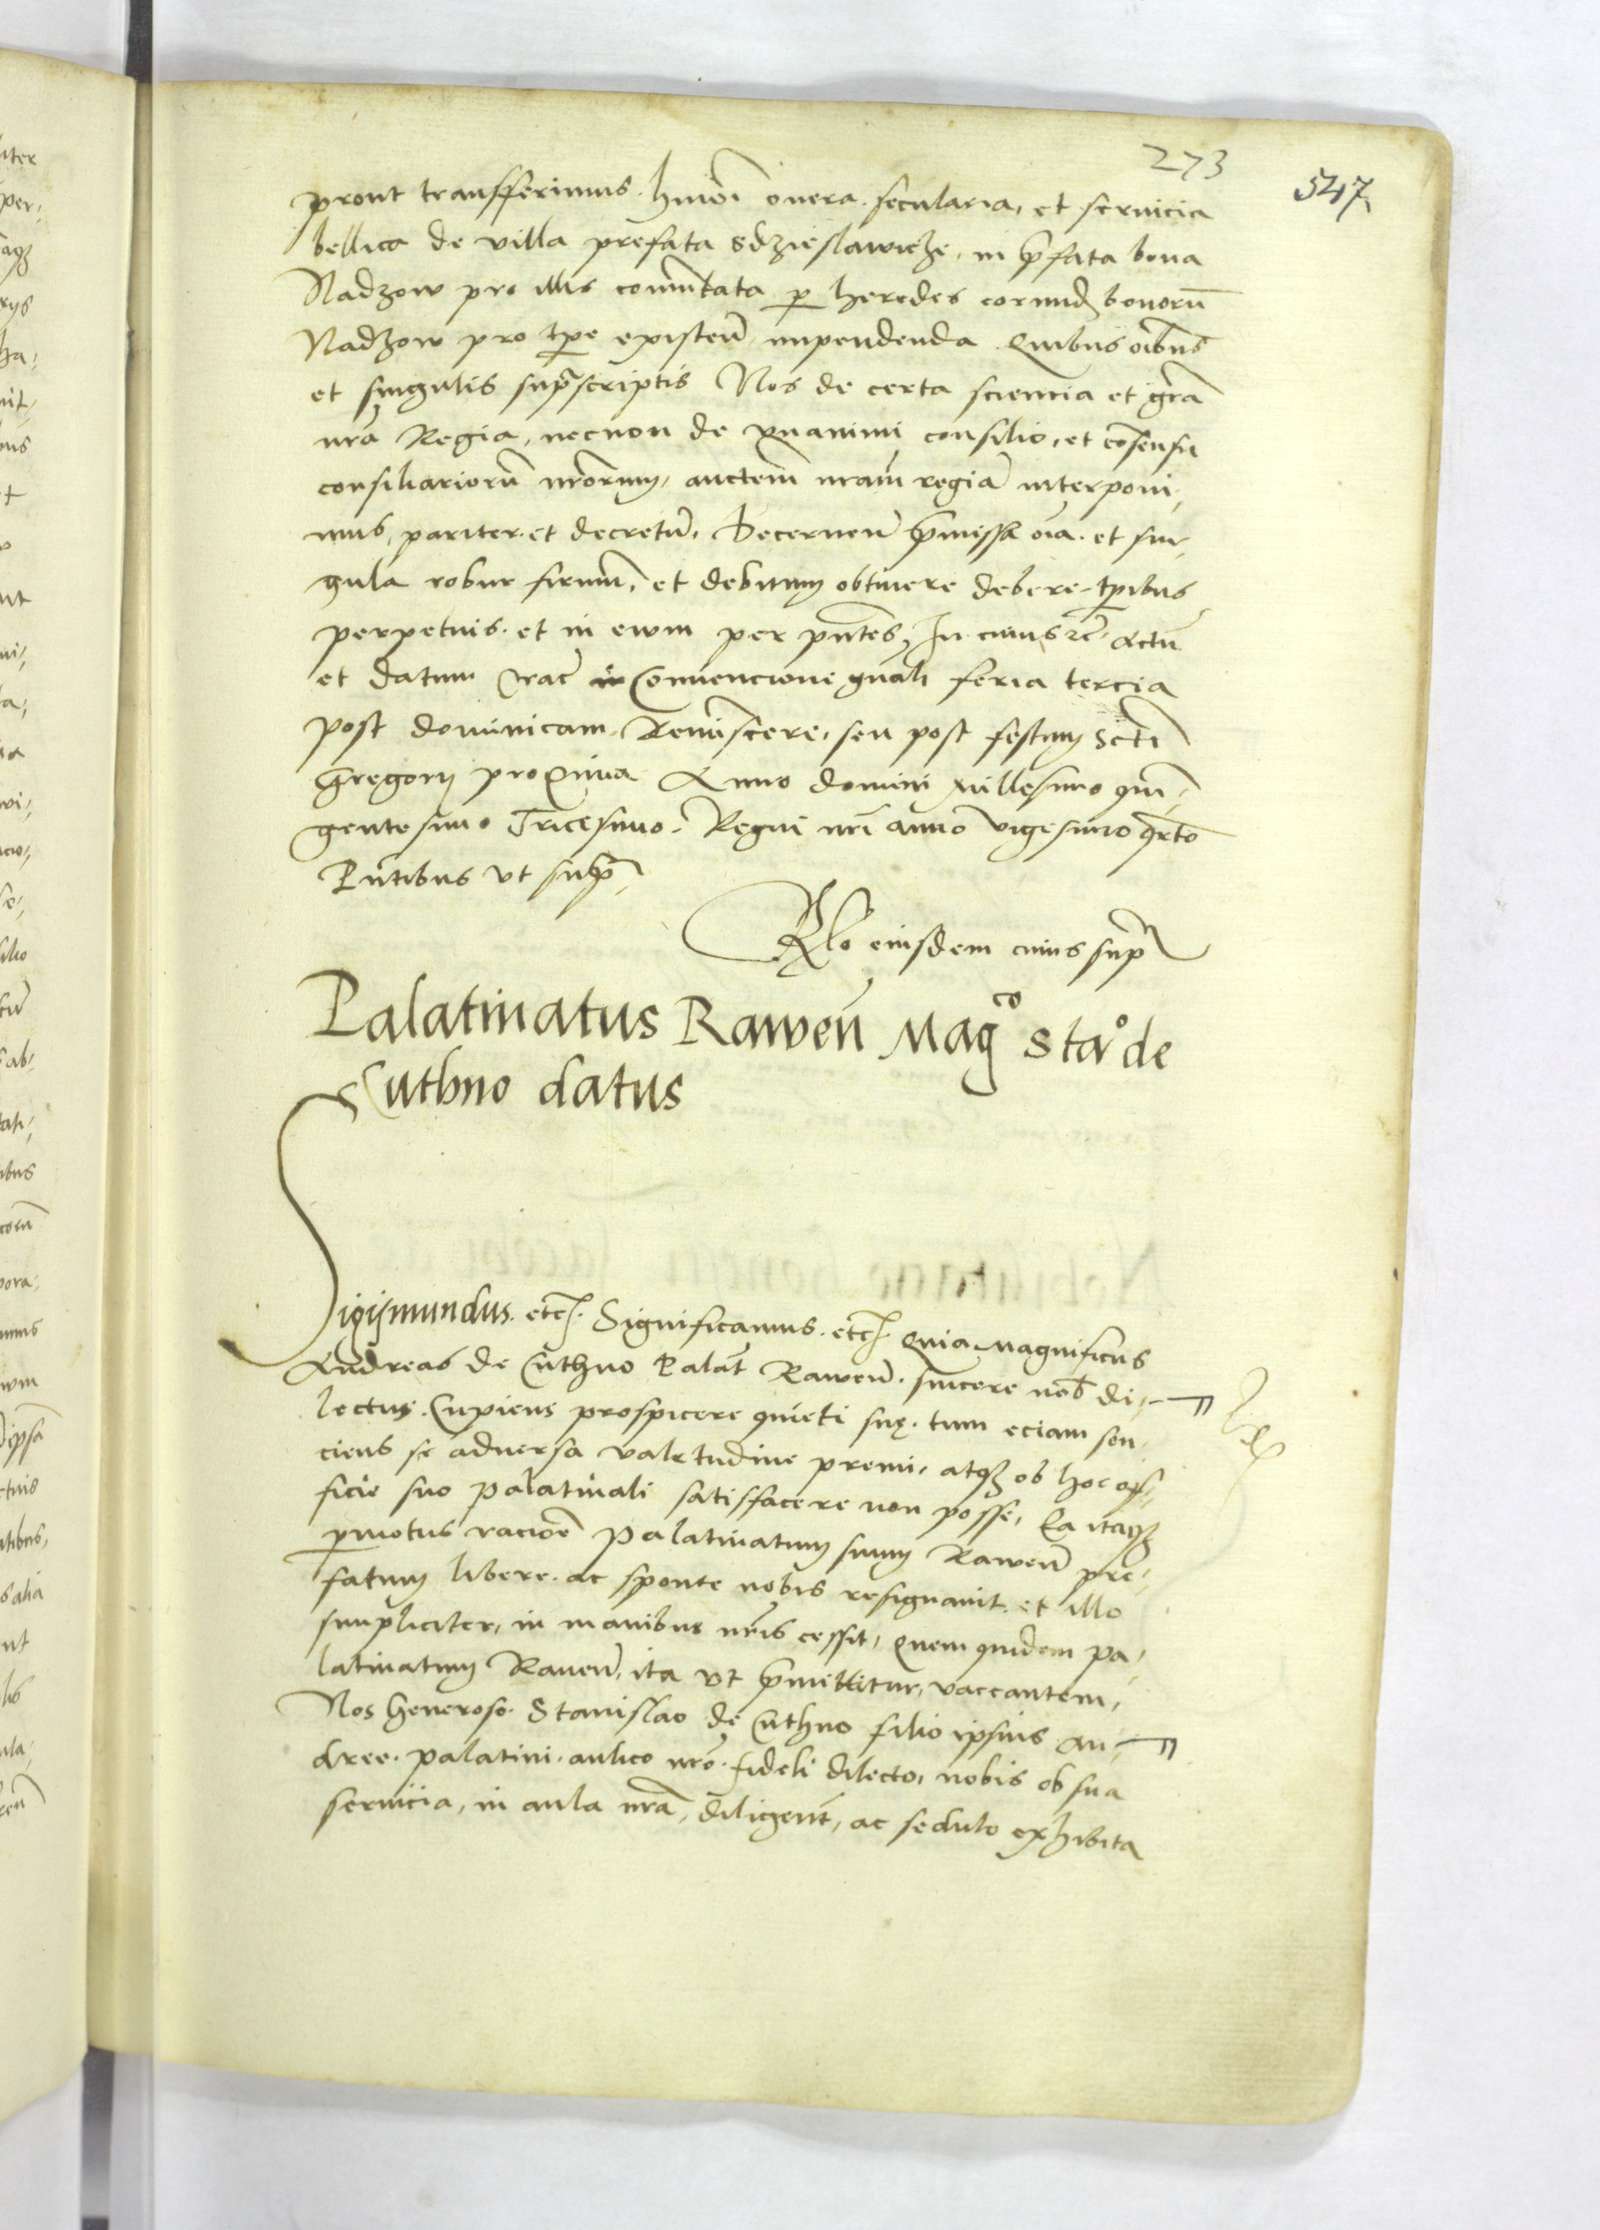 273
547
prout transfferimus. hmoi onera. secularia, et servicia
bellica de villa prefata Sdzieslawicze, in pfata bona
Nadzow pro illis comutata p heredes eorund bonoru
Nadzow pro tpe existen impendenda Quibus oibus
et singulis supscriptis Nos de certa sciencia et gra
nra Regia, necnon de vnanimi consilio, et cosensu
consiliarioru nrorum, auctem nram regia interponi,
mus, pariter. et decretu, Decernen pmissa oia. et sin,
gula robur firmu, et debitum obtinere debere. tpibus
perpetuis. et in ewm per pntes, In cuius rei. Actu
et datum Crac in Convencione gnali feria tercia
post dominicam. Reminiscere, seu post festum Scti
Gregorij proxima Anno domini millesimo quin,
gentesimo Tricesimo. Regni nri anno vigesimo qrto
Pntibus vt sup,
Rlo eiusdem cuius sup
Palatinatus Rawen Magco Stao de
Cuthno datus
Sigismundus. etc. Significamus. etc. Quia Magnificus
Andreas de Cuthno Palat Rawen. sincere nob di,
lectus. Cupiens prospicere quieti sue. tum eciam sen,
ciens se adversa valetudine premi, atq ob hoc of,
ficio suo palatinali satisfacere non posse, Ea itaq
pmotus racioe Palatinatum suum Rawen pre,
fatum libere. ac sponte nobis resignavit. et illo
simpliciter, in manibus nris cessit, Quem quidem pa,
latinatum Raven, ita vt pmittitur, vaccantem,
Nos Generoso. Stanislao de Cuthno filio ipsius An,
dree. palatini. aulico nro. fideli dilecto, nobis ob sua
servicia, in aula nra, diligent, ac sedulo exhibita